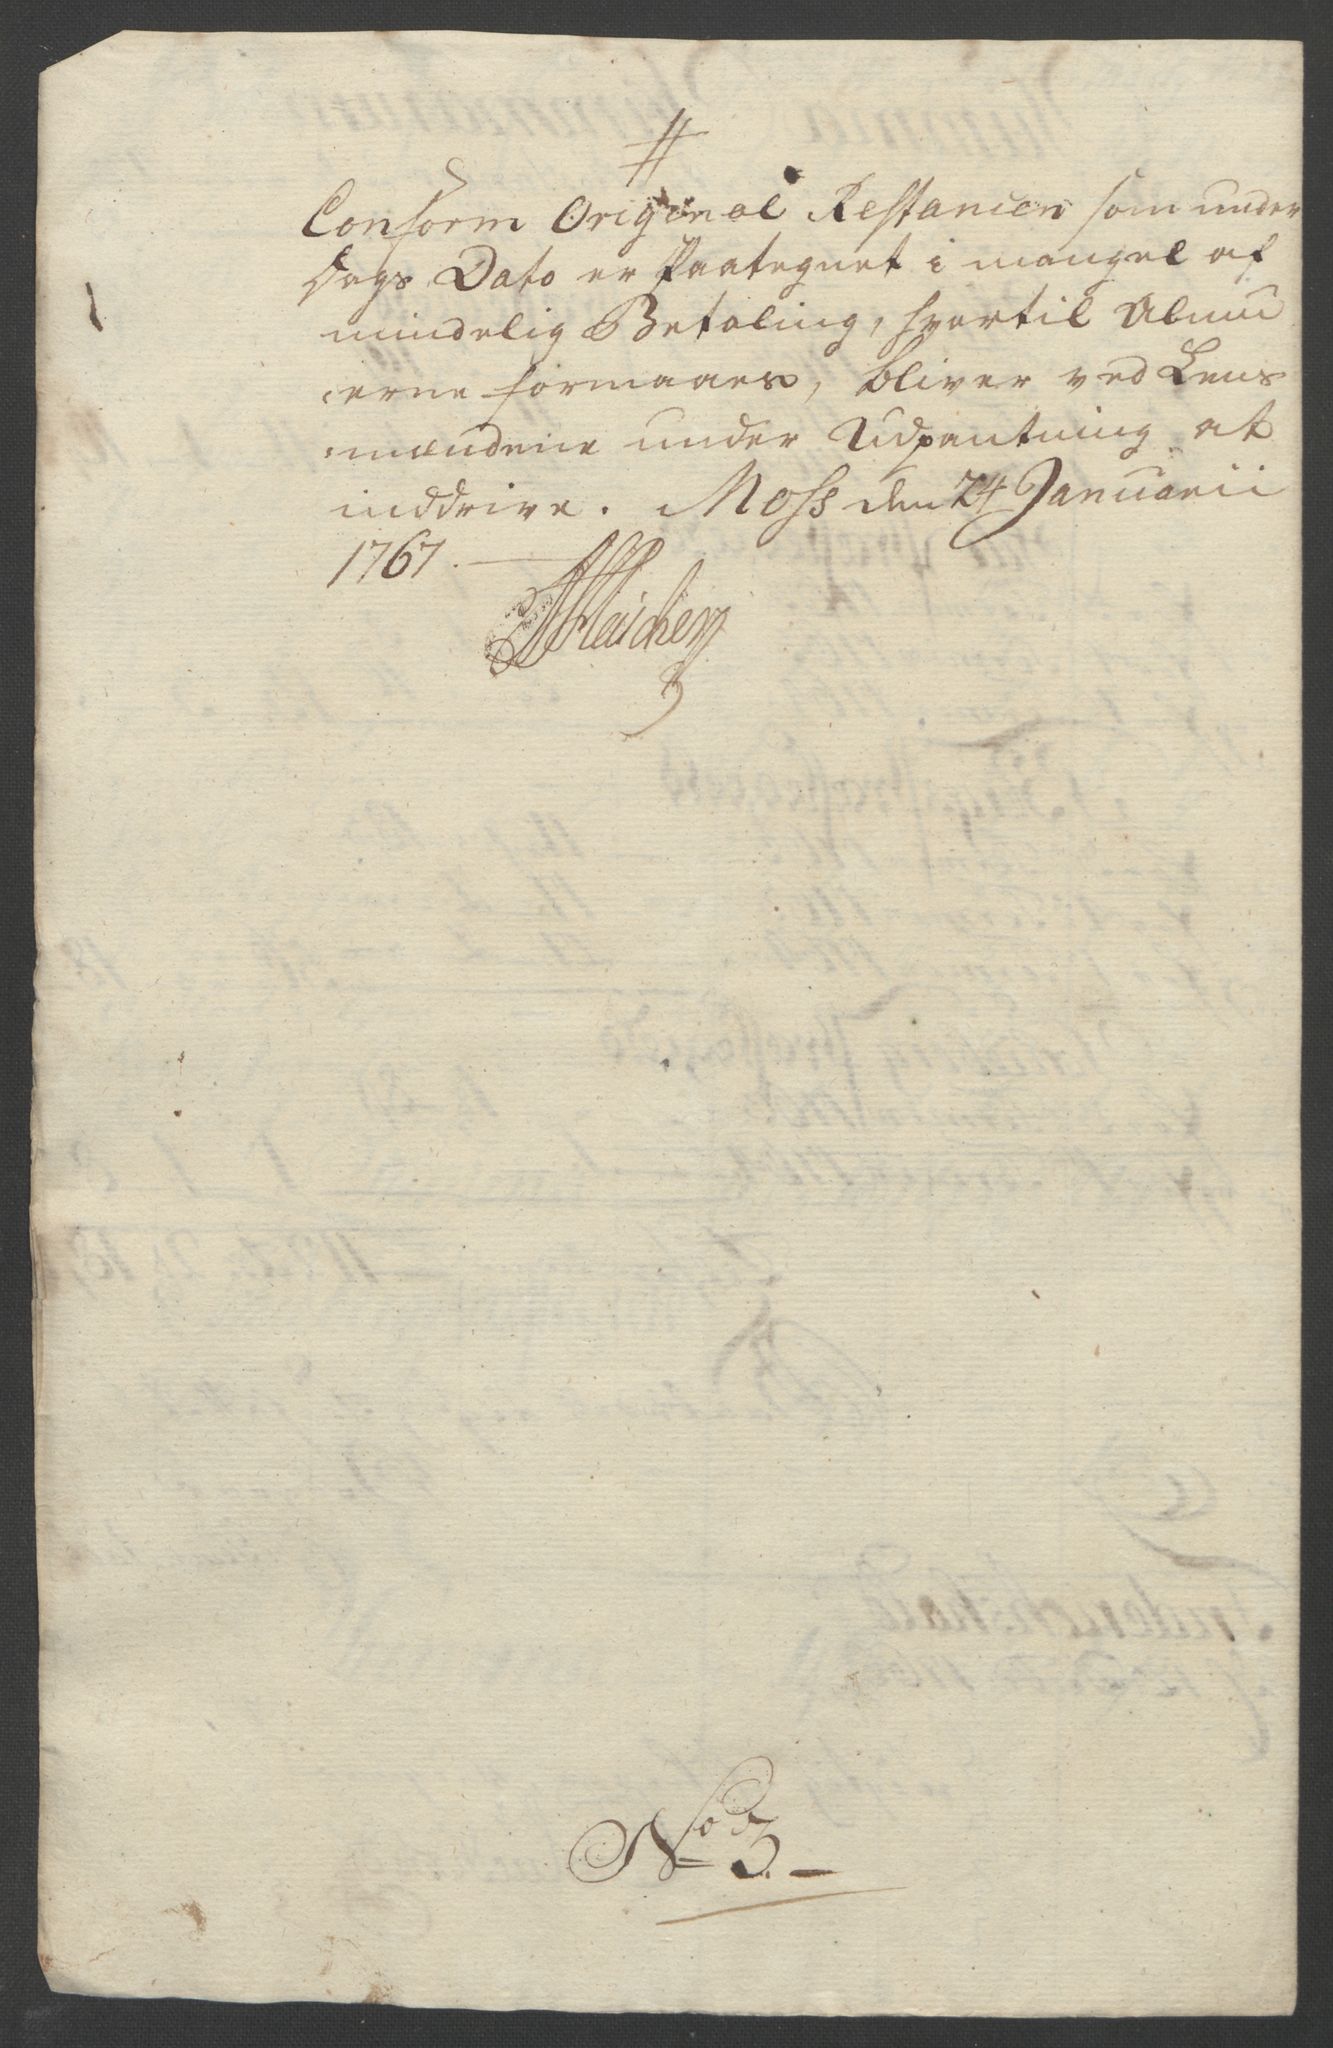 #
Conform Original Restancen som under
Dags Dato er Paategnet i mangel af
mindelig Betaling, hvortil Almu
erne formaaes, bliver ved Lens
mændene under Udpantning at
inddrive. Moss den 24 Januarii
1767.
No 3.